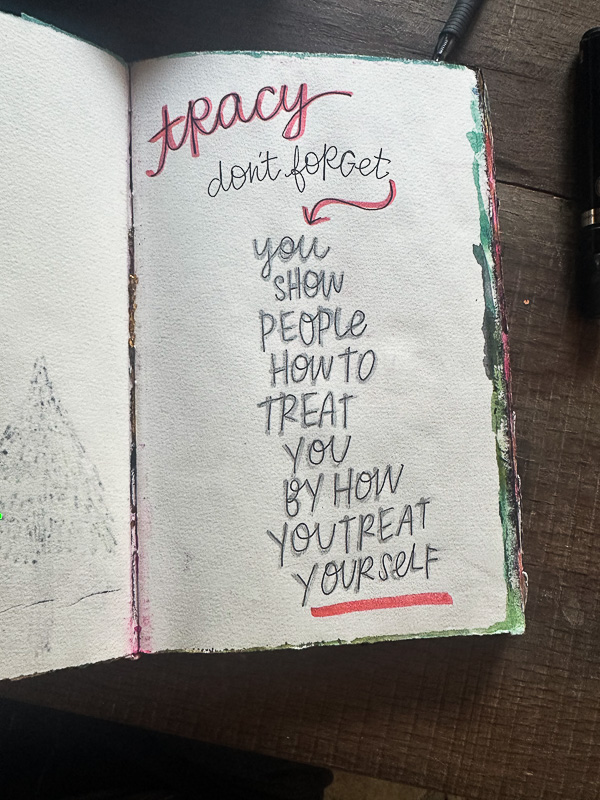 tracy
don't forget
you
SHOW
PEOPLE
HOW TO
TREAT
YOU
BY HOW
YOU TREAT
YOURSELF